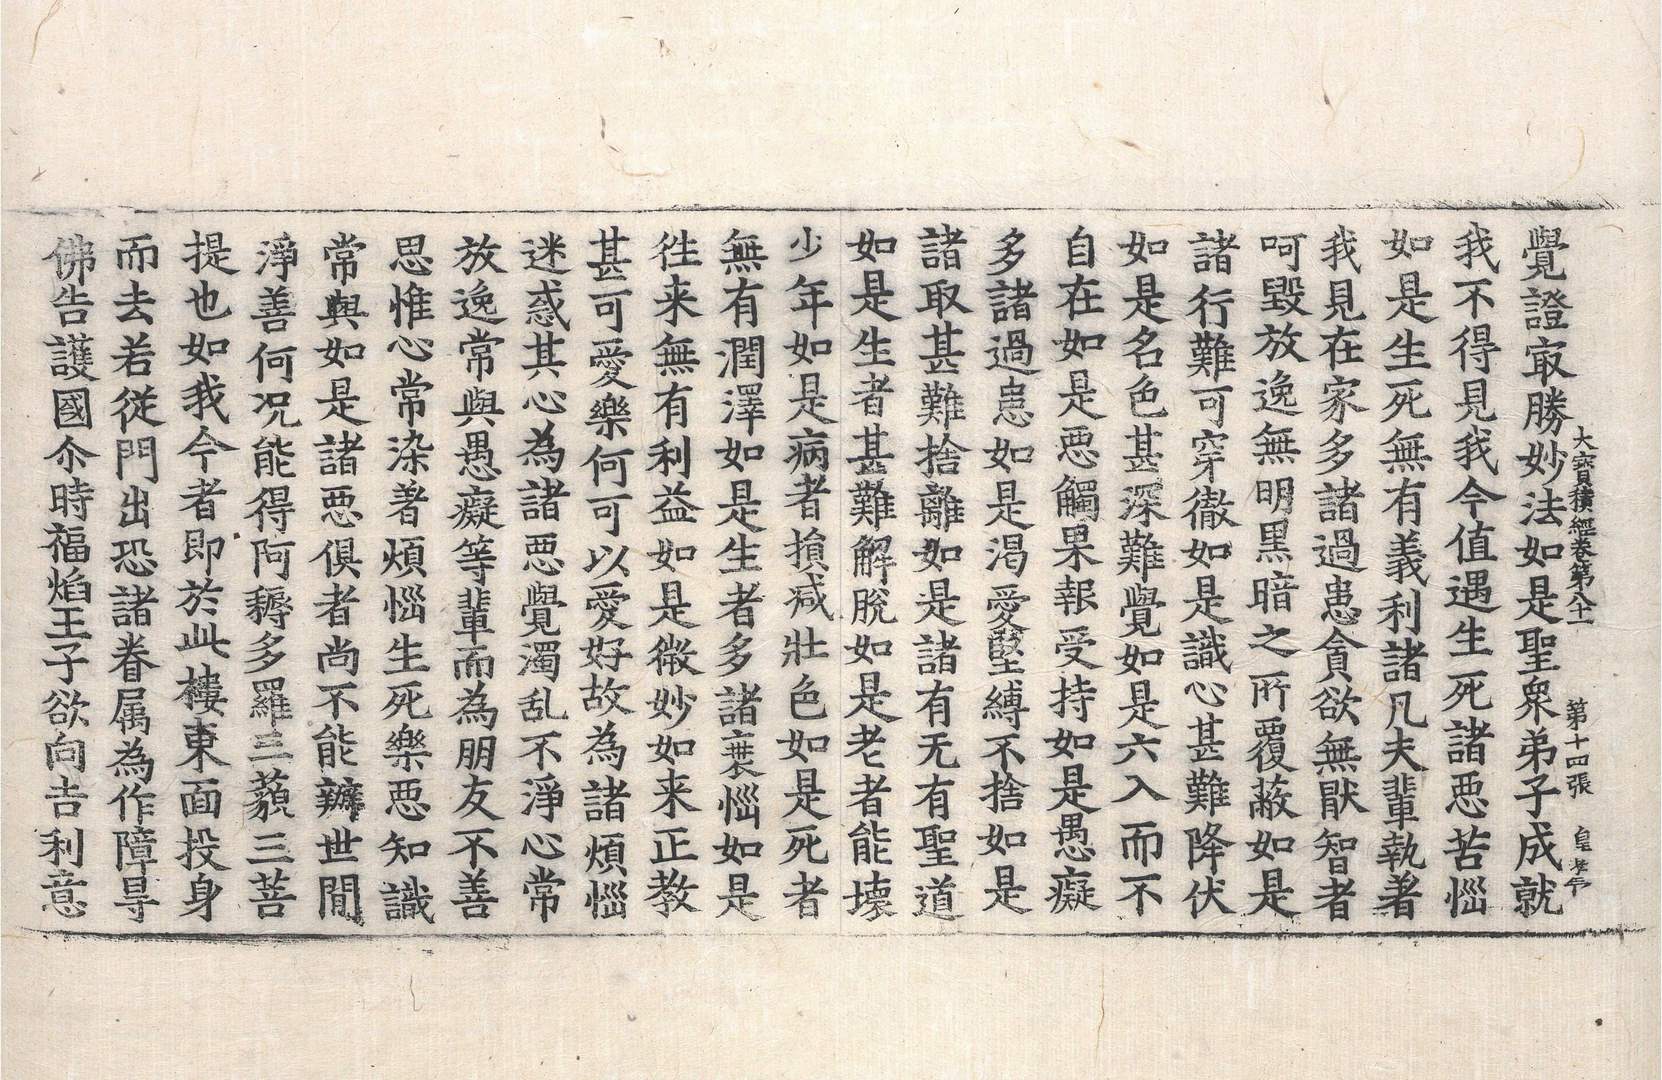 大寶積經卷第八十一 第十四張
覺證冣勝妙法如是聖衆弟子成就
我不得見我今值遇生死諸惡苦惱
如是生死無有義利諸凡夫輩執著
我見在家多諸過患貪欲無猒智者
呵毀放逸無明黑暗之所覆蔽如是
諸行難可穿徹如是識心甚難降伏
如是名色甚深難覺如是六入而不
自在如是惡觸果報受持如是愚癡
多諸過患如是渴愛堅縛不捨如是
諸取甚難捨離如是諸有无有聖道
如是生者甚難解脫如是老者能壞
少年如是病者損减壯色如是死者
無有潤澤如是生者多諸衰惱如是
徃来無有利益如是微妙如来正教
甚可愛樂何可以愛好故為諸煩惱
迷惑其心為諸惡覺濁乱不淨心常
放逸常與愚癡等輩而為朋友不善
思惟心常染著煩惱生死樂惡知識
常與如是諸惡俱者尚不能辦世閒
淨善何况能得阿耨多羅三藐三菩
提也如我今者即於此樓東面投身
而去若從門出恐諸眷属為作障㝵
佛告護國尒時福焰王子欲向吉利意